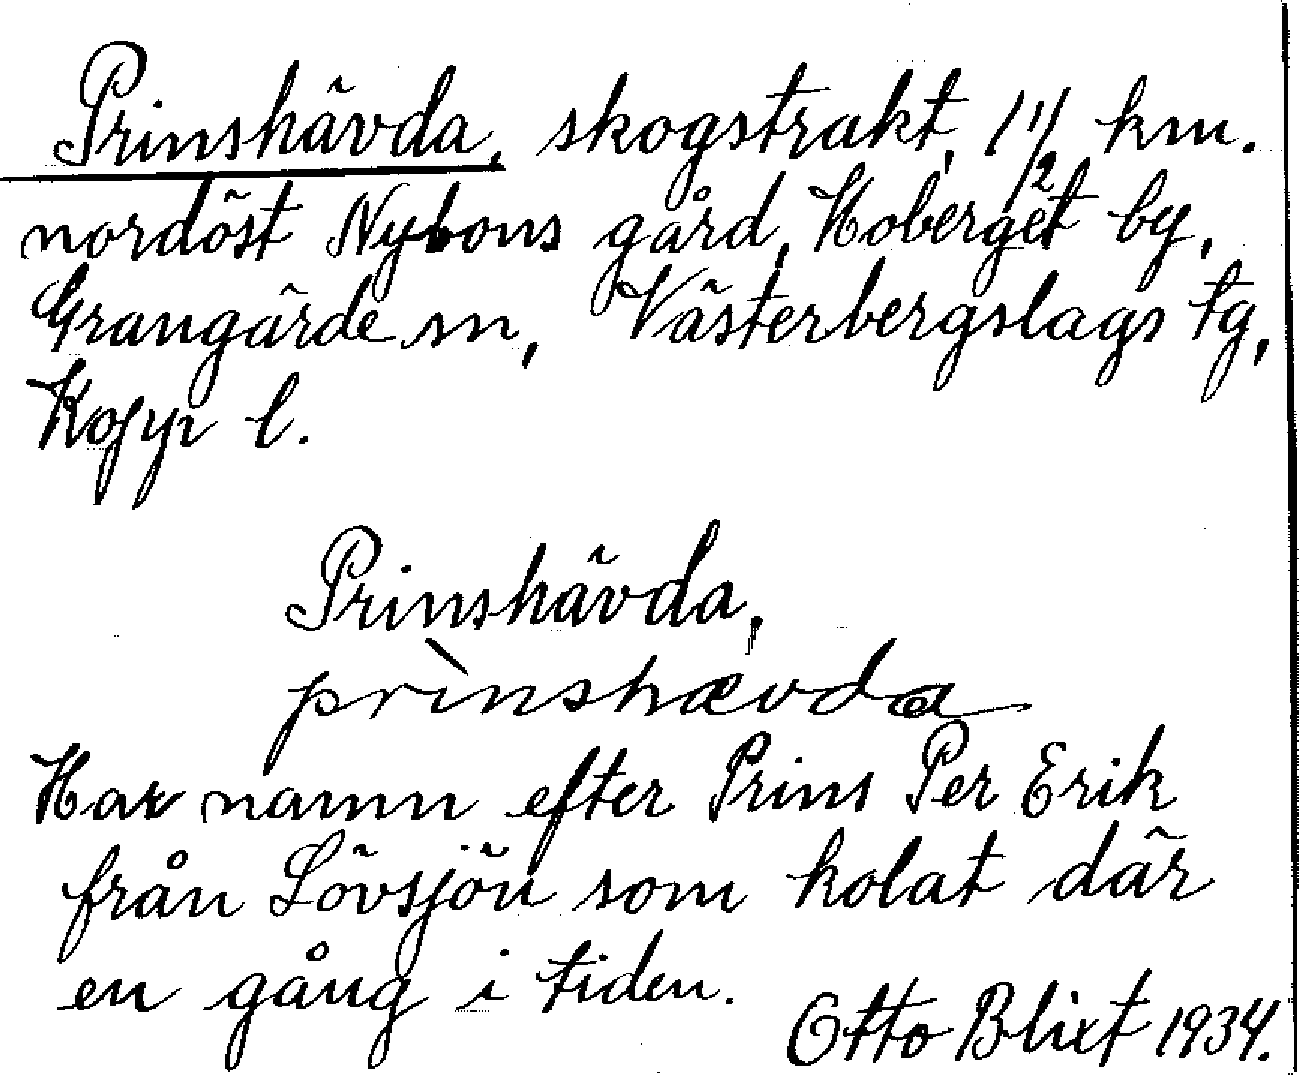 Prinshävda, skogstrakt, 1 1/2 km.
nordöst Nybons gård, Hoberget by,
Grangärde sn, Västerbergslags tg,
Kopp l.
Prinshävda,
prìnshævda
Har namn efter Prins Per Erik
från Lövsjön som kolat där
en gång i tiden.
Otto Blixt 1934.